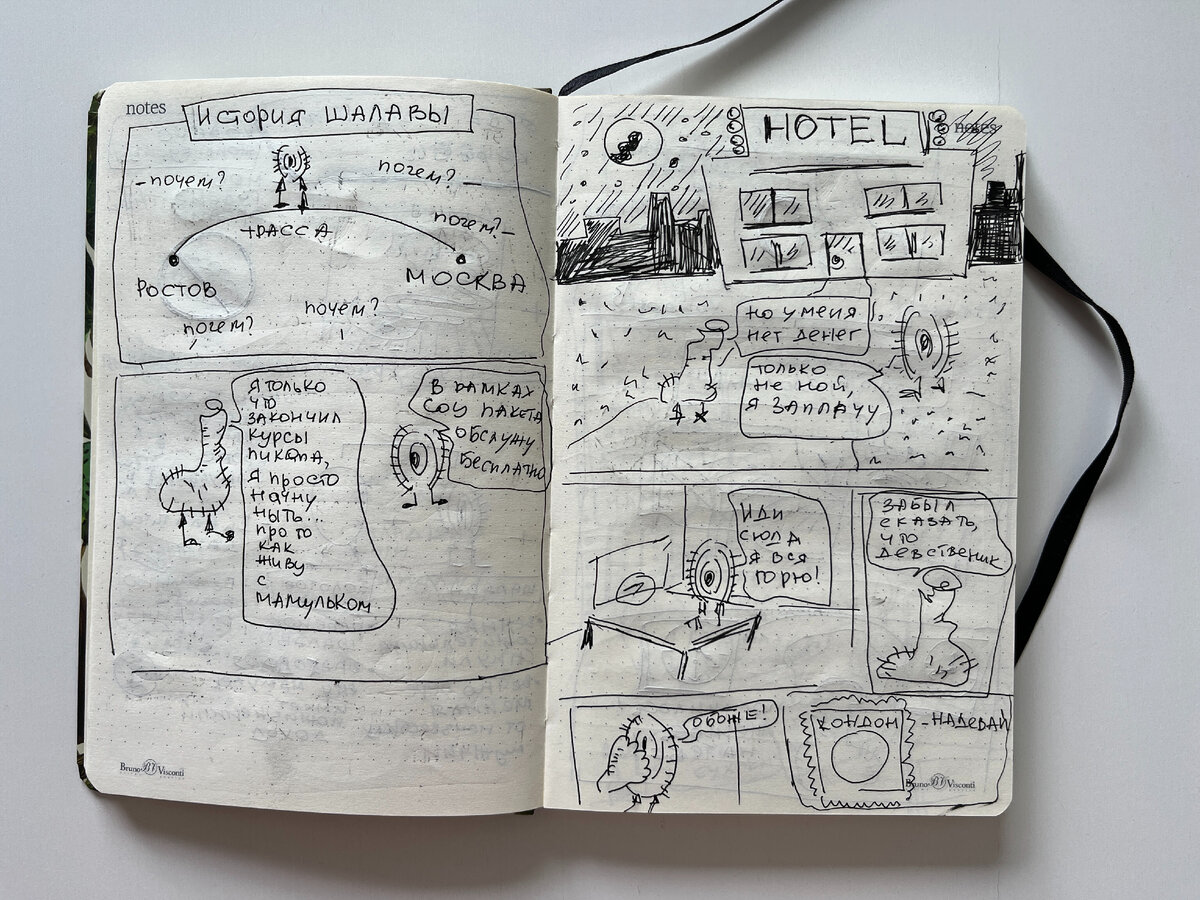 notes
История ШАЛАВЫ
- почем?
почем? -
почем? -
ТРАССА
РОСТОВ
МОСКВА
почем?
почем?
Я ТОЛЬКО
ЧТО
ЗАКОНЧИЛ
КУРСЫ
ПИКАПА,
Я ПРОСТО
НАЧНУ
НЫТЬ...
ПРО ТО
КАК
ЖИВУ
С
МАМУЛЬКОМ
В РАМКАХ
СОЦ ПАКЕТА
ОБСЛУЖУ
БЕСПЛАТНО
Bruno Visconti
notes
HOTEL
НО У МЕНЯ
НЕТ ДЕНЕГ
ТОЛЬКО
НЕ НОЙ,
Я ЗАПЛАЧУ
ИДИ
СЮДА
Я ВСЯ
ГОРЮ!
ЗАБЫЛ
СКАЗАТЬ,
ЧТО
ДЕВСТВЕННИК
ОБОЖЕ!
КОНДОН
- НАДЕВАЙ
Bruno Visconti